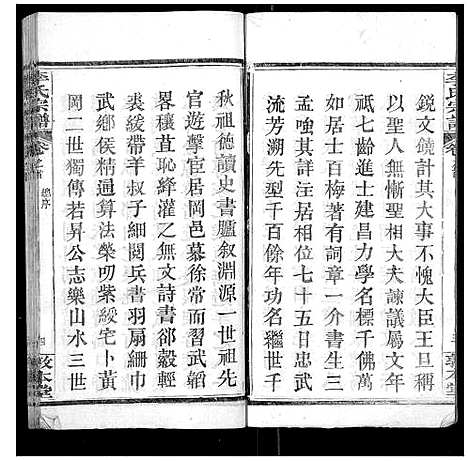 李氏宗譜
卷之首
銳文饒計其大事不愧大臣王旦稱
以聖人無慚聖相大夫諫議屬文年
祗七齡進士建昌力學名標千佛萬
卷居士百梅著有詞章一介書生三
孟唯其詳注居相位七十五日忠武
流芳溯先型千百餘年功名繼世千
敦本堂
秋祖德讀史書臚叙淵源一世祖先
官遊擊官居岡邑慕徐常而習武韜
界穰苴恥絳灌之無文詩書卻縠輕
裘緩帶羊叔子細閱兵書羽扇綸巾
武鄉侯精通算法榮叨紫綬宅卜黃
岡二世獨傳若昇公志樂山水三世
李氏宗譜
卷之首
總序
四
敦本堂